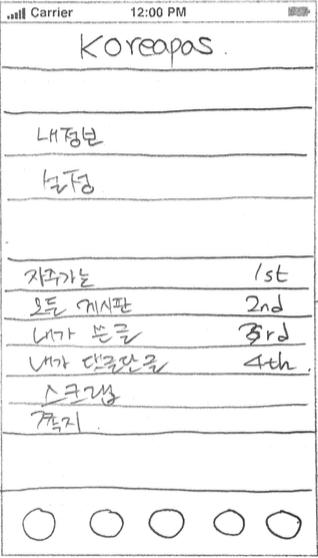 Carrier 12:00 PM
Koreapas.
내정보
설정
자주가는 1st
모든 게시판 2nd
내가 쓴글 3rd
내가 댓글단글 4th.
스크랩
쪽지.